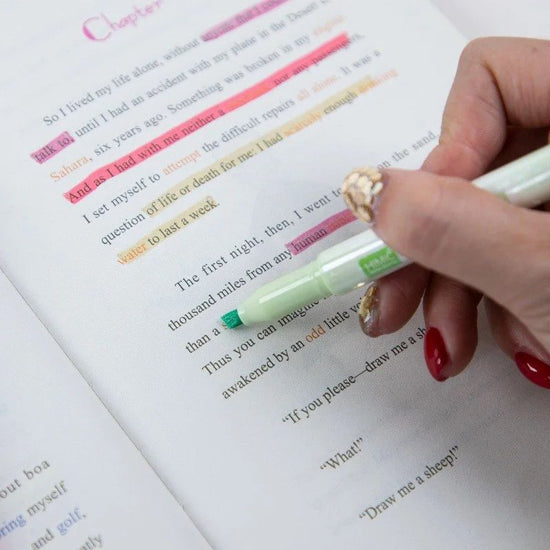 Chapter
So I lived my life alone, without
talk to, until I had an accident with my plane in the Desert
Sahara, six years ago. Something was broken in my engine.
And as I had with me neither a nor any passengers,
I set myself to attempt the difficult repairs all alone. It was a
question of life or death for me: I had scarcely enough drinking
water to last a week.
The first night, then, I went to on the sand,
thousand miles from any human
than a
Thus you can imagine
awakened by an odd little
"If you please—draw me a
"What!"
"Draw me a sheep!"
out boa
myself
and golf,